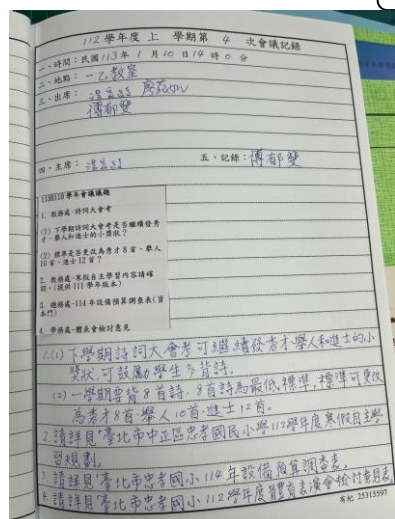 112 學年度 上 學期第 4 次會議記錄
一、時間：民國 113 年 1 月 10 日 14 時 0 分
二、地點：一乙教室
三、出席：
傅郁雯
四、主席：
五、記錄：傅郁雯
1130110 學年會議議題
1. 教務處-詩詞大會考
(1) 下學期詩詞大會考是否繼續發秀
才、舉人和進士的小獎狀？
(2) 標準是否更改為秀才 8 首、舉人
10 首、進士 12 首？
2. 教務處-寒假自主學習內容請確
認。(提供 111 學年版本)
3. 總務處-114 年設備預算調查表(資
本門)
4. 學務處-體表會檢討意見
1.(1) 下學期詩詞大會考可繼續發秀才舉人和進士的小
獎狀，可鼓勵學生多背詩。
(2) 一學期要背 8 首詩，8 首詩為最低標準，標準可更改
為秀才 8 首、舉人 10 首、進士 12 首。
2. 請詳見臺北市中正區忠孝國民小學 112 學年度寒假自主學
習規劃。
3. 請詳見臺北市忠孝國小 114 年設備預算調查表。
4. 請詳見臺北市忠孝國小 112 學年度體育表演會檢討意見表。
有紀 25315597